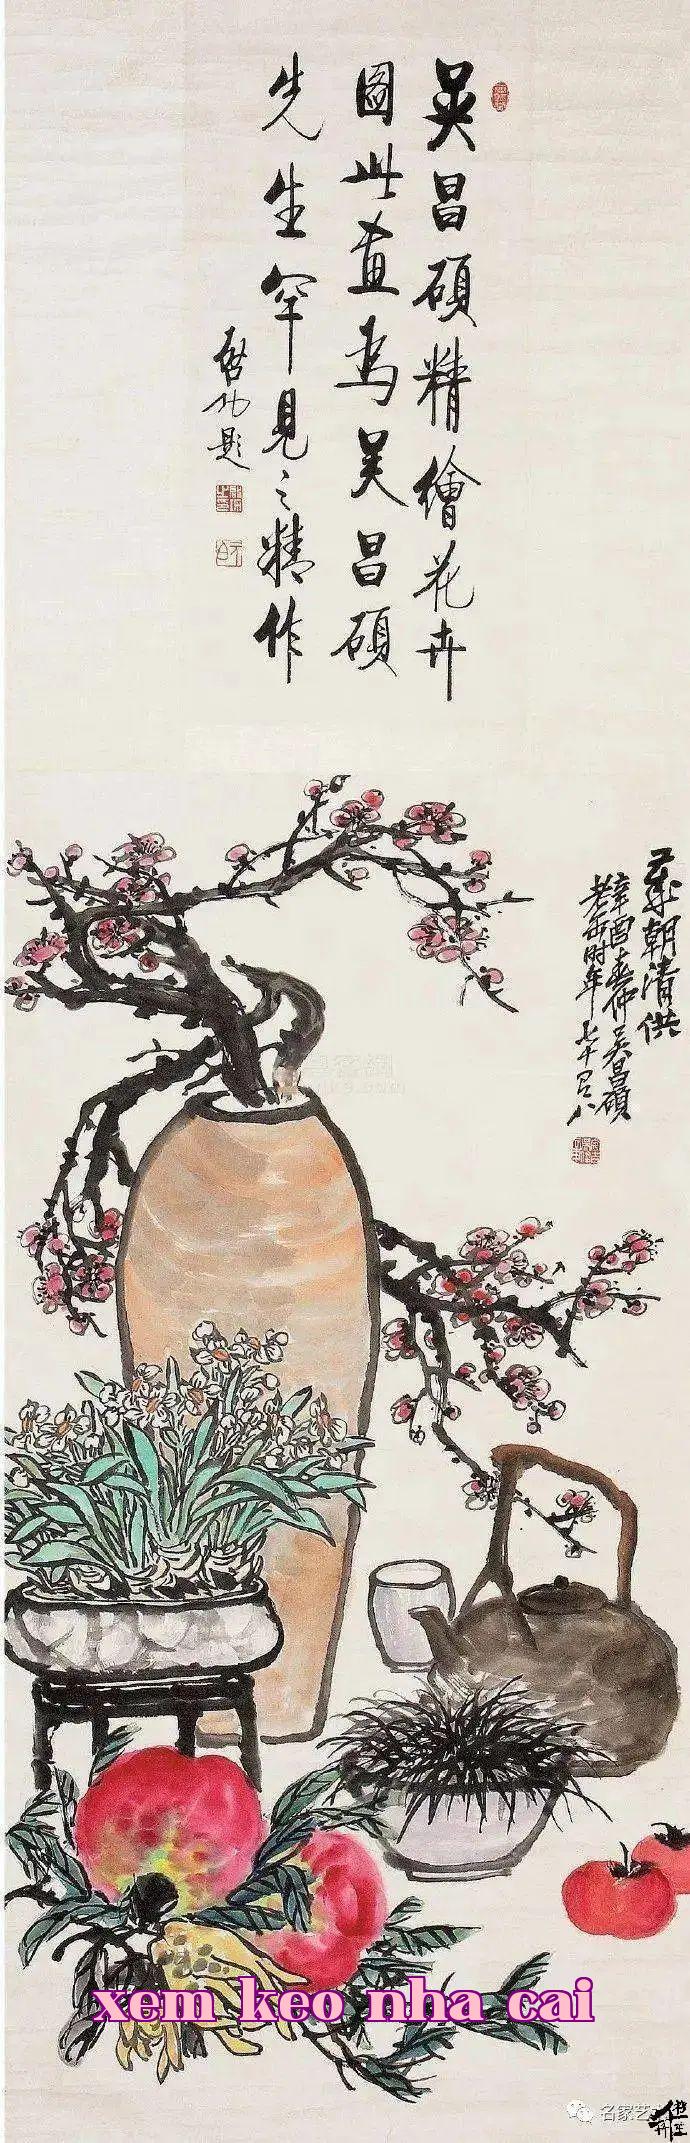 吴昌硕精繪花卉
圖此畫為吴昌碩
先生罕見之精作
啓功題
歲朝清供
辛酉春仲吴昌碩
老缶時年七十有八
xem keo nha cai
名家艺